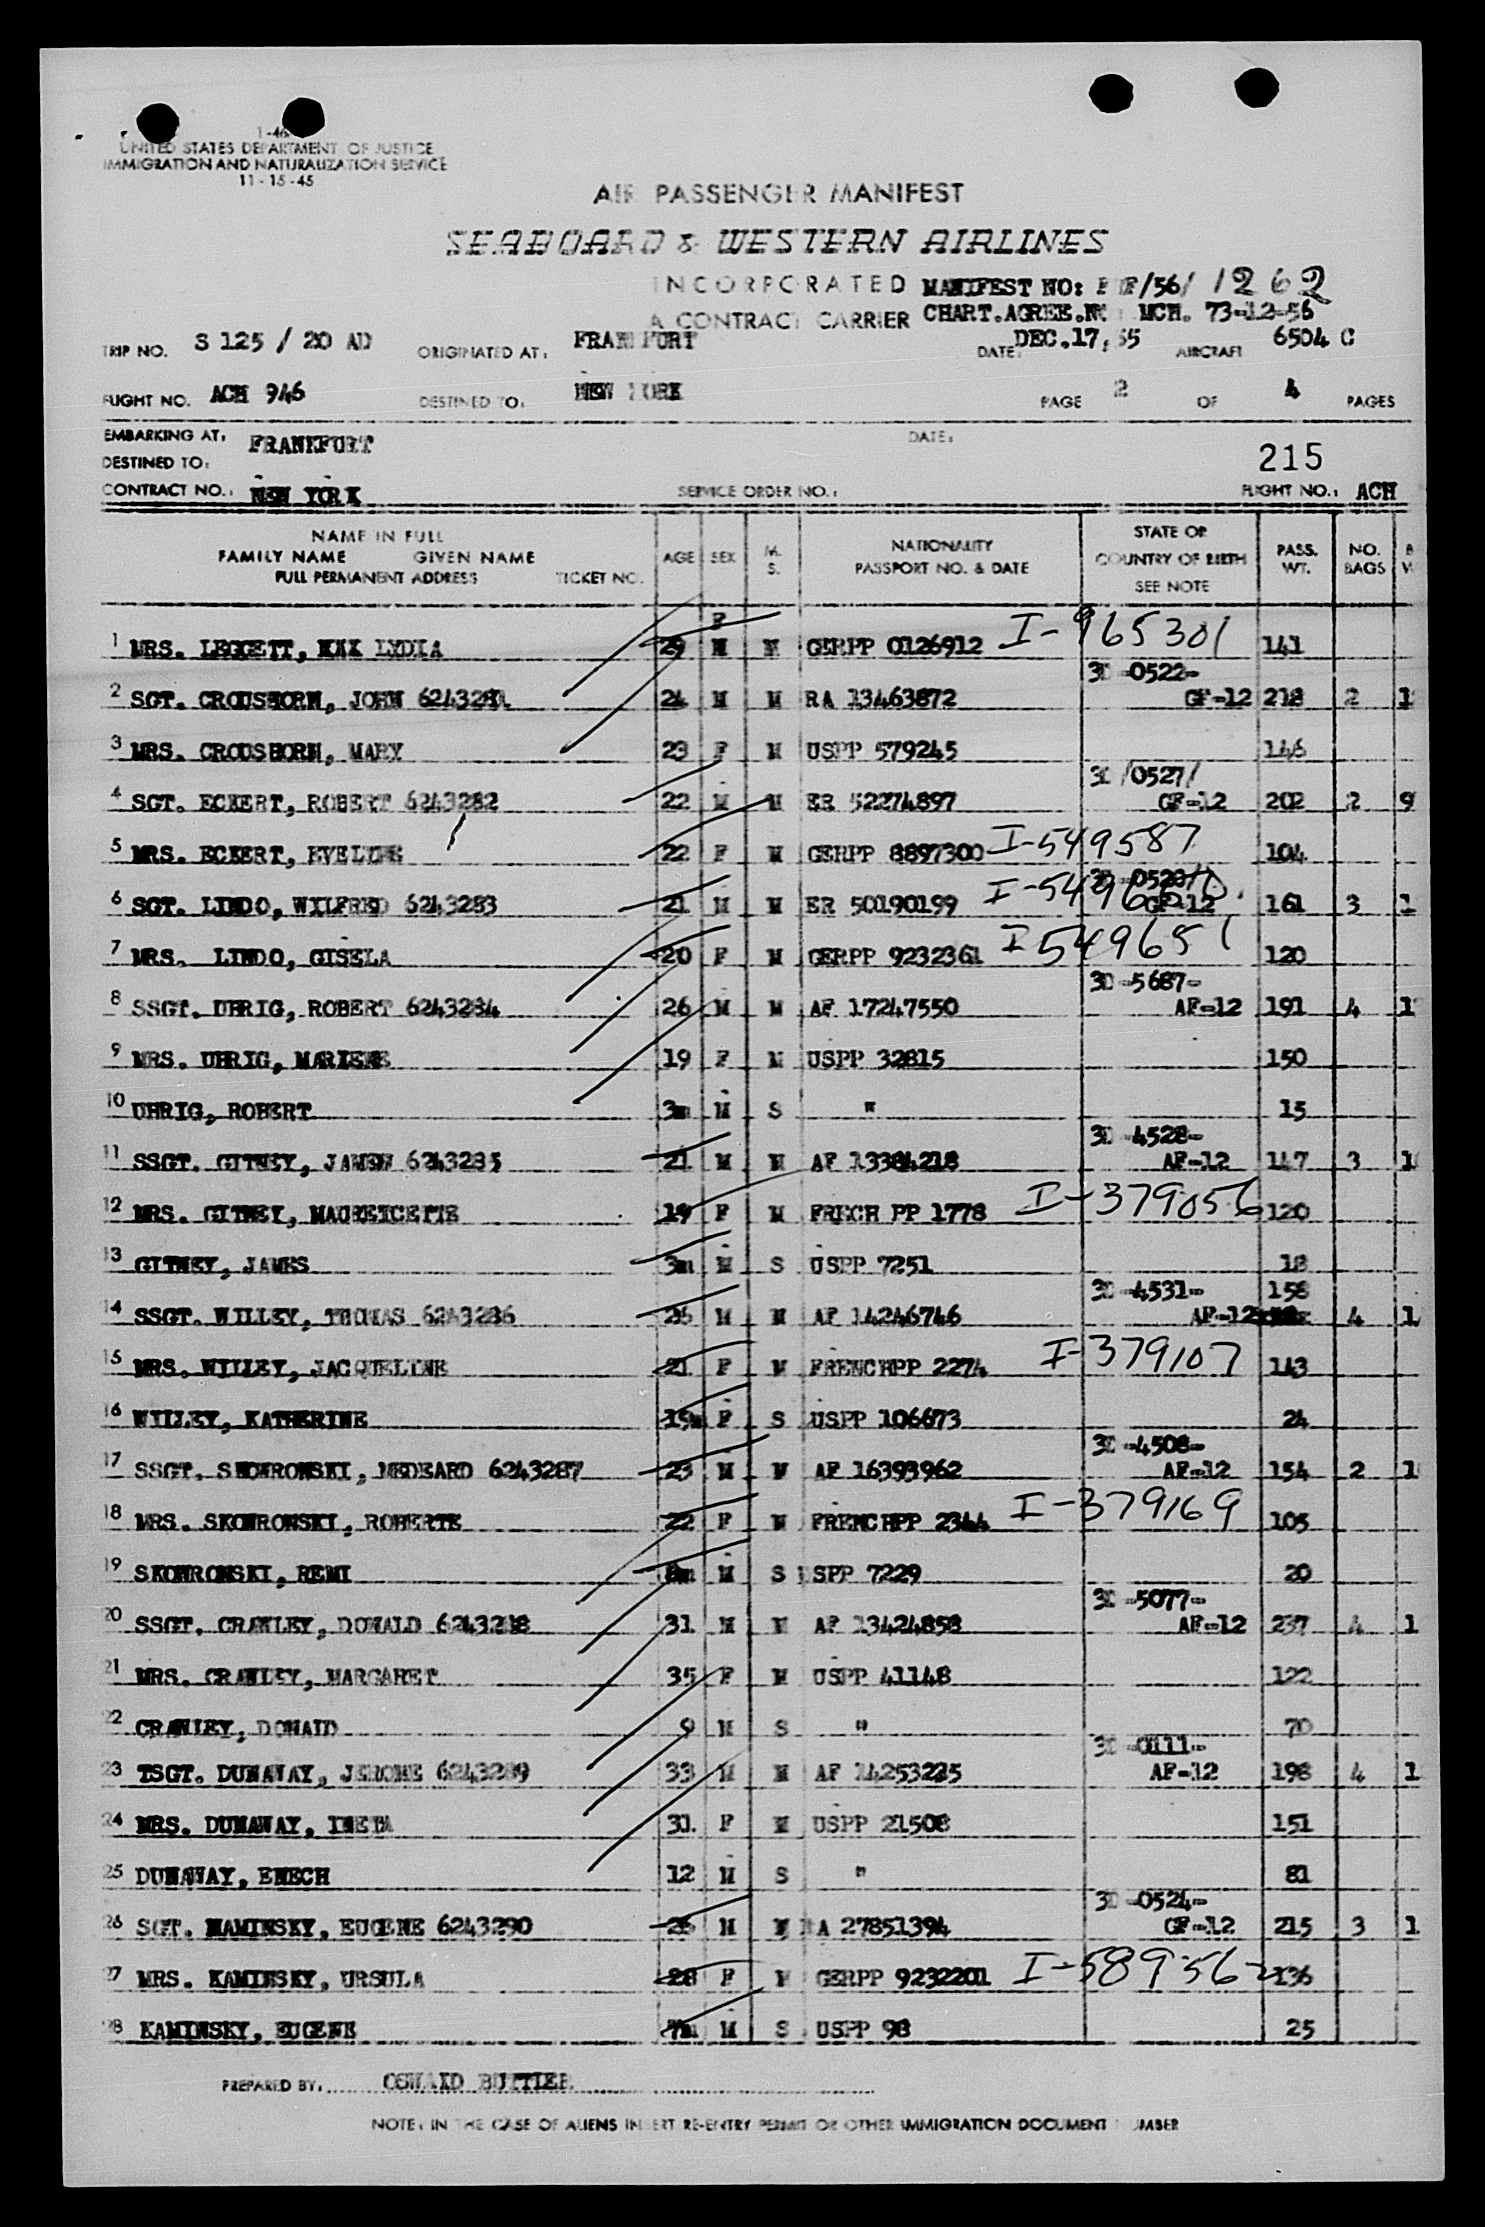 I-46
UNITED STATES DEPARTMENT OF JUSTICE
IMMIGRATION AND NATURALIZATION SERVICE
11-15-45
AIR PASSENGER MANIFEST
SEABOARD & WESTERN AIRLINES
INCORPORATED MANIFEST NO: /56/ 1262
A CONTRACT CARRIER CHART.AGREE.NO MCH. 73-12-56
TRIP NO. S 125 / 20 AD ORIGINATED AT: FRANKFURT DATE: DEC.17, 55 AIRCRAFT 6504 C
FLIGHT NO. ACH 946 DESTINED TO: NEW YORK PAGE 2 OF 4 PAGES
EMBARKING AT: FRANKFURT DATE:
DESTINED TO: 215
CONTRACT NO.: NEW YORK SERVICE ORDER NO.: FLIGHT NO.: ACH
NAME IN FULL STATE OR
FAMILY NAME GIVEN NAME AGE SEX M. S. NATIONALITY COUNTRY OF BIRTH PASS. WT. NO. BAGS
FULL PERMANENT ADDRESS TICKET NO. PASSPORT NO. & DATE SEE NOTE
F
1 MRS. LEGGETT, LYDIA 29 M M GERPP 0126912 I-965301 141
30 -0522-
2 SGT. CROUSHORN, JOHN 6243281 24 M M RA 13463872 GF-12 218 2 1
3 MRS. CROUSHORN, MARY 23 F M USPP 579245 146
30 /0527/
4 SGT. ECKERT, ROBERT 6243282 22 M M ER 52274897 GF-12 202 2 9
5 MRS. ECKERT, EVELINE 22 F M GERPP 8897300 I-549587 104
6 SGT. LINDO, WILFRED 6243283 21 M M ER 50190199 GF-12 161 3 1
7 MRS. LINDO, GISELA 20 F M GERPP 9232361 I 549651 120
30 -5687-
8 SSGT. UHRIG, ROBERT 6243284 26 M M AF 17247550 AF-12 191 4 1
9 MRS. UHRIG, MARLENE 19 F M USPP 32815 150
10 UHRIG, ROBERT 3m M S " 15
30 -4528-
11 SSGT. GITNEY, JAMES 6243285 21 M M AF 13384218 AF-12 147 3 1
12 MRS. GITNEY, 19 F M FRECH PP 1778 I-379056 120
13 GITNEY, JAMES 3m M S USPP 7251 18
30 -4531- 158
14 SSGT. WILLEY, THOMAS 6243286 26 M M AF 14246746 AF-12 4 1
15 MRS. WILLEY, JACQUELINE 21 F M FRENCHPP 2274 I-379107 143
16 WILLEY, KATHERINE 19m F S USPP 106673 24
30 -4508-
17 SSGT. SKOWRONSKI, MEDEARD 6243287 23 M M AF 16393962 AF-12 154 2 1
18 MRS. SKOWRONSKI, ROBERTE 22 F M FRENCHPP 2344 I-379169 105
19 SKOWRONSKI, REMI 8m M S USPP 7229 20
30 -5077-
20 SSGT. CRAWLEY, DONALD 6243288 31 M M AF 13424858 AF-12 237 4 1
21 MRS. CRAWLEY, MARGARET 35 F M USPP 41148 122
22 CRAWLEY, DONALD 9 M S " 70
30 -0111-
23 TSGT. DUNAWAY, JEROME 6243289 33 M M AF 14253225 AF-12 198 4 1
24 MRS. DUNAWAY, INETA 31 F M USPP 21508 151
25 DUNAWAY, ENECH 12 M S " 81
30 -0524-
26 SGT. KAMINSKY, EUGENE 6243290 26 M M RA 27851394 GF-12 215 3 1
27 MRS. KAMINSKY, URSULA 28 F M GERPP 9232201 I-589562 136
28 KAMINSKY, EUGENE 7m M S USPP 98 25
PREPARED BY: OSWALD
NOTE: IN THE CASE OF ALIENS INSERT RE-ENTRY PERMIT OR OTHER IMMIGRATION DOCUMENT NUMBER